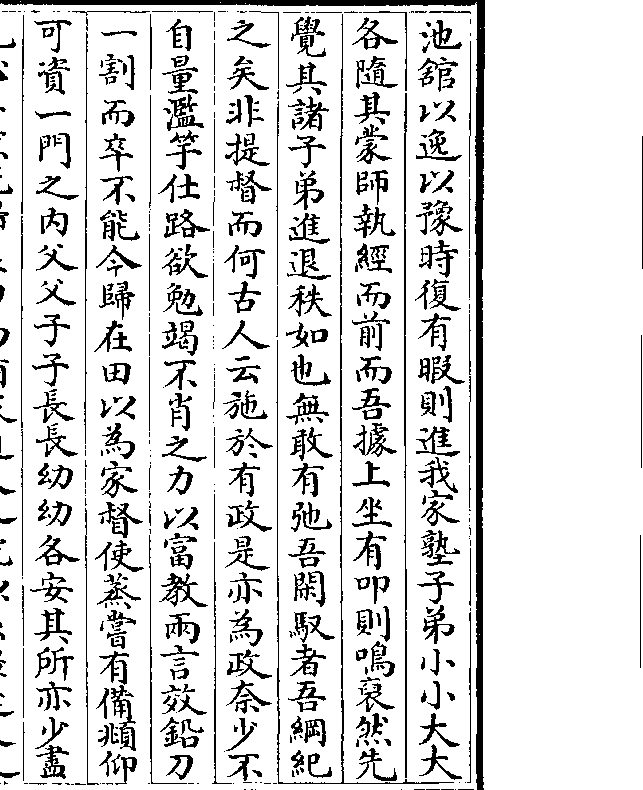 池舘以逸以豫時復有暇則進我家塾子弟小小大大
各隨其蒙師執經而前而吾據上坐有叩則鳴裒然先
覺其諸子弟進退秩如也無敢有弛吾閑馭者吾綱紀
之矣非提督而何古人云施於有政是亦為政奈少不
自量濫竽仕路欲勉竭不肖之力以富教兩言效鉛刀
一割而卒不能今歸在田以為家督使蒸嘗有備頫仰
可資一門之内父父子子長長幼幼各安其所亦少盡